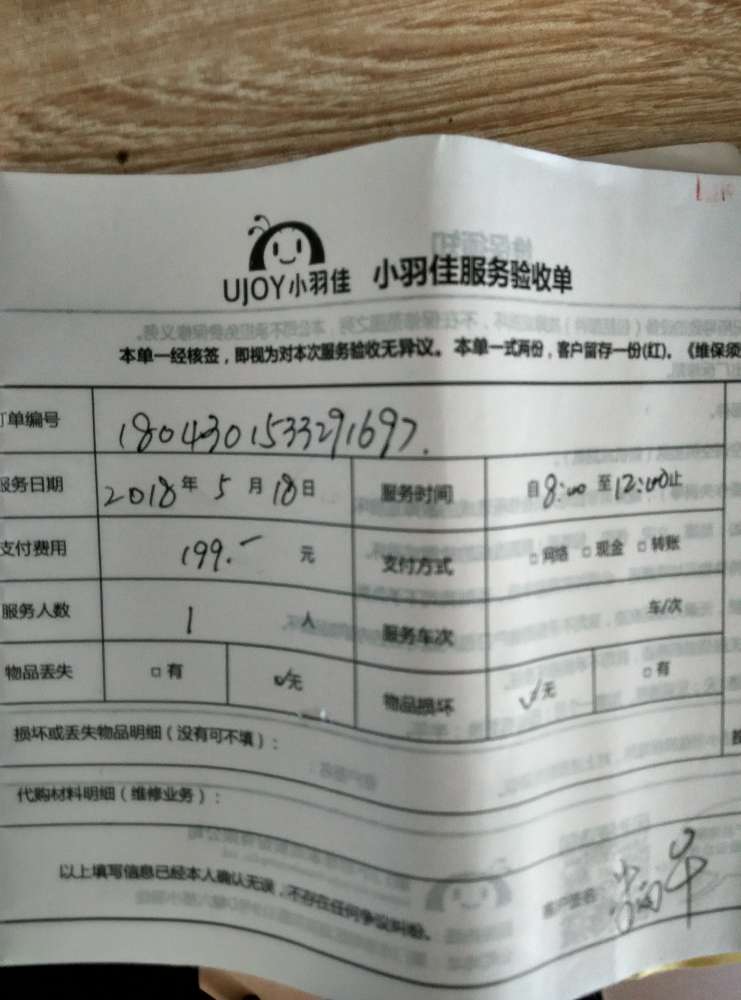 UJOY小羽佳 小羽佳服务验收单
本单一经核签，即视为对本次服务验收无异议。本单一式两份，客户留存一份(红)。《维保须
订单编号 1804301533291697.
服务日期 2018年5月18日 服务时间 自8:00至12:00止
支付费用 199.- 元 支付方式 □网络 □现金 □转账
服务人数 1 人 服务车次 车/次
物品丢失 □有 ✓无 物品损坏 ✓无 □有
损坏或丢失物品明细（没有可不填）：
代购材料明细（维修业务）：
以上填写信息已经本人确认无误，不存在任何争议纠纷。 客户签名